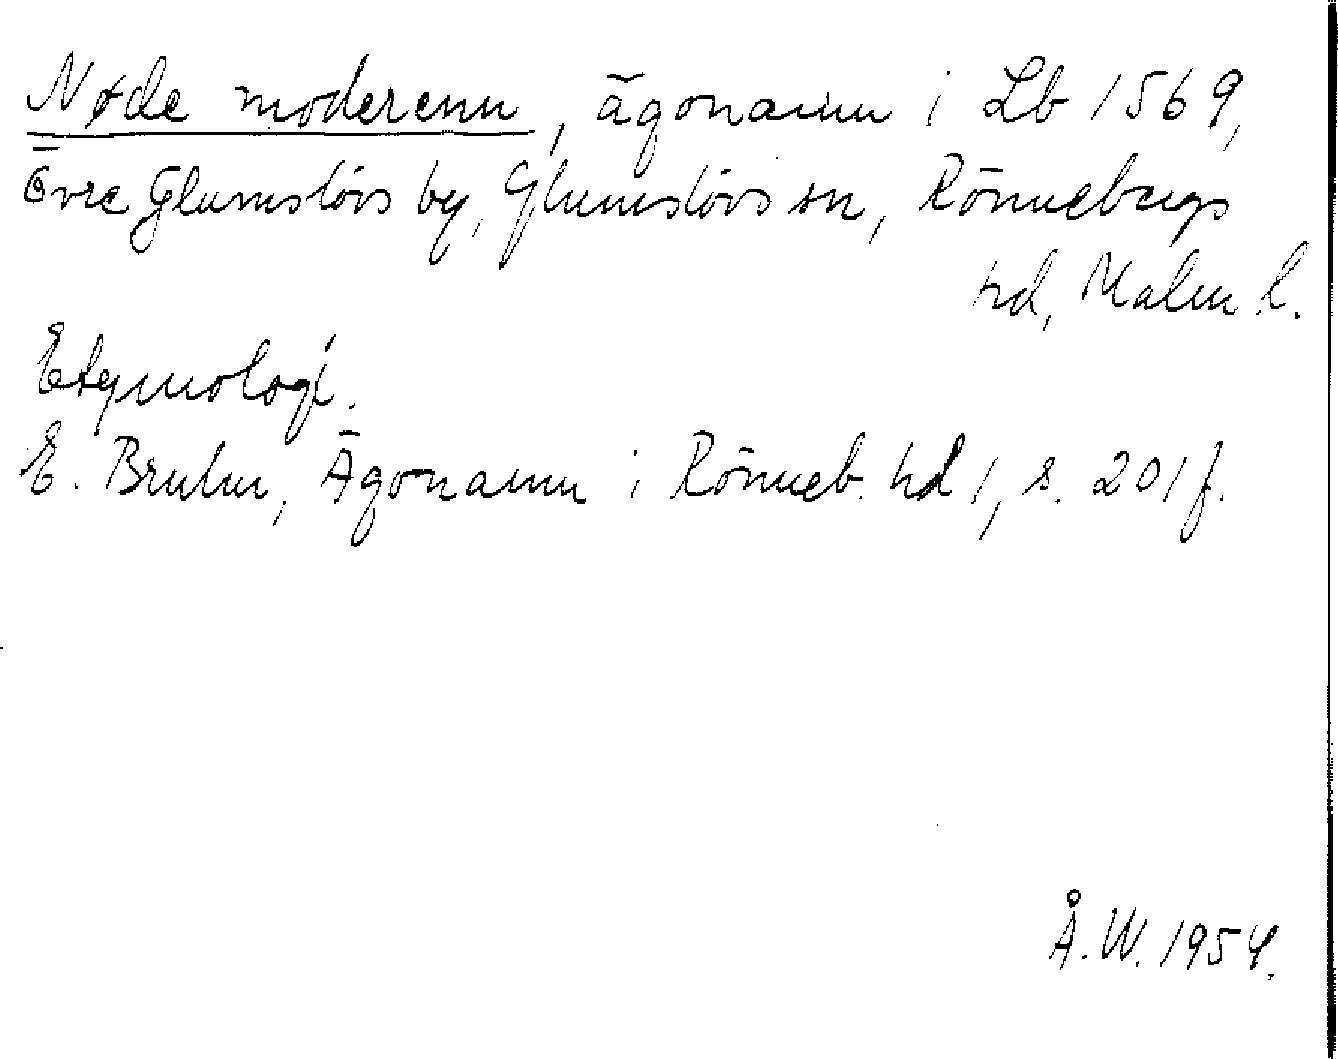 Nøde moderenn, ägonamn i Lb 1569,
Övre Glumslövs by, Glumslövs sn, Rönnebergs
hd, Malm. l.
Etymologi.
E. Bruhn, Ägonamn i Rönneb. hd 1, s. 201 f.
Å.W. 1954.